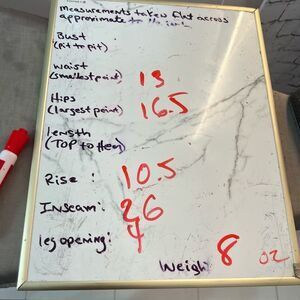 measurements taken flat across
approximate to the
Bust
(pit to pit)
Waist
(smallest point) 13
Hips
(largest point) 16.5
Length
(TOP to Hem)
Rise : 10.5
Inseam: 26
leg opening: 7
Weigh: 8 oz